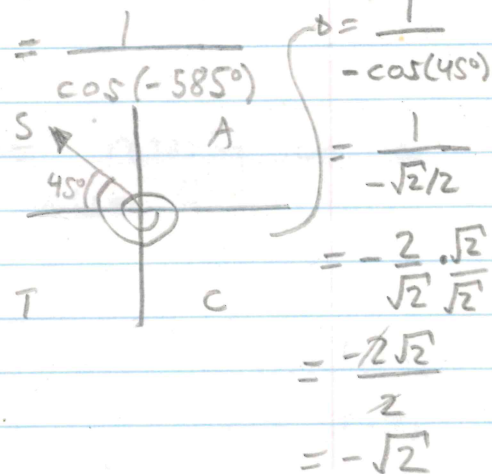 = 1 / cos(-585°)
S A
45°
T C
= 1 / -cos(45°)
= 1 / -√2/2
= - 2/√2 · √2/√2
= -2√2 / 2
= -√2